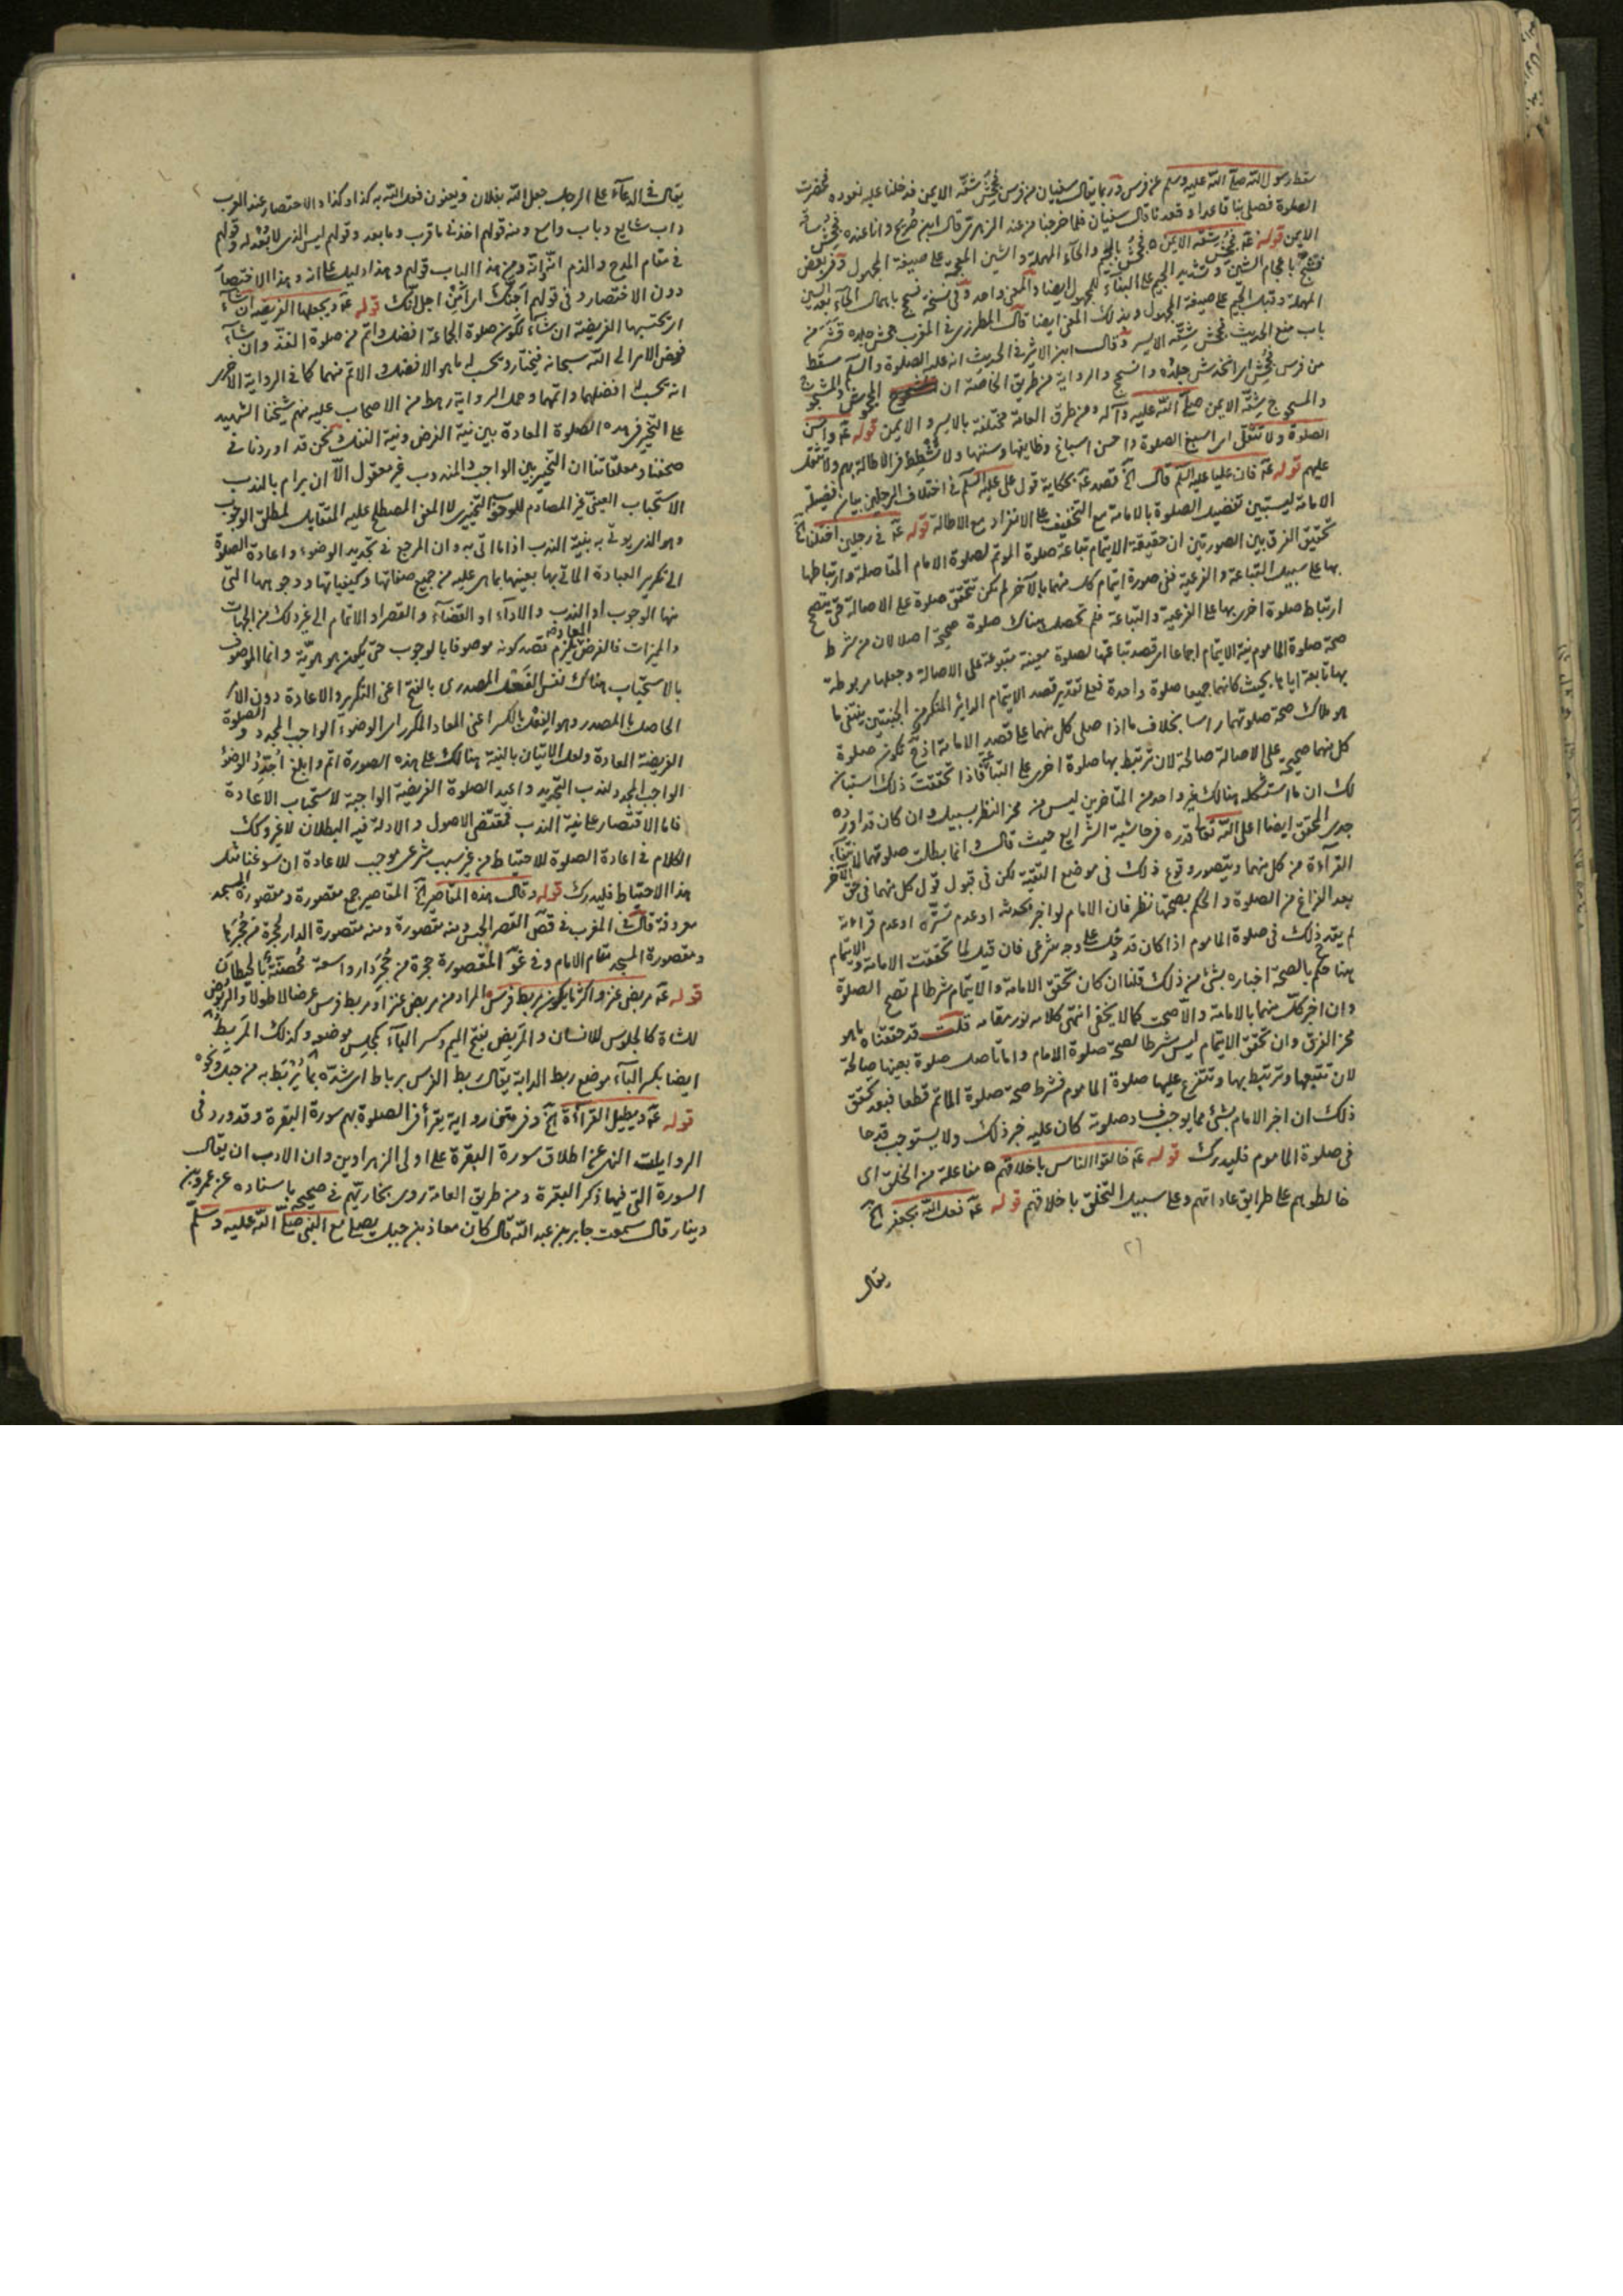 سقط رسول الله صلى الله عليه وسلم عن فرس وربما قال سفيان من فرس فجحش شقه الايمن فدخلنا عليه نعوده فحضرت
الصلوة فصلى بنا قاعدا وقعدنا قال سفيان فلما خرجنا من عند الزهري قال ابن جريج وانا عنده فجحش ساقه
الايمن قوله عه فجحش شقه الايمن فجحش بالجيم والحاء المهملة والشين المعجمة على صيغة المجهول وفي بعض
باعجام الشين وتشديد الجيم على البناء للمجهول ايضا والمعنى واحد وفي نسخة فسحج باهمال الحاء بعد السين
المهملة وقبل الجيم على صيغة المجهول وبذلك المعنى ايضا قال المطرزي في المغرب جحش جلده قشره من
باب منع الحديث فجحش شقه الايسر وقال ابن الاثير في الحديث انه عليه الصلوة والسلم سقط
من فرس فجحش اي انخدش جلده وانسحج والرواية من طريق الخاصة ان المجحوش والمشجوج
والمسحوج شقه الايمن صلى الله عليه وآله ومن طرق العامة مختلفة بالايسر والايمن قوله عه واحسن
الصلوة ولا تثقل اي اسبغ الصلوة واحسن اسباغ وظايفها وسننها ولا تشطط في الاطالة بهم ولا تثقل
عليهم قوله عه فان عليا عليه السلم قال الخ قصد عه بحكاية قول على عليه السلم في اختلاف الرجلين بيان فضيلة
الامامة ليستبين تفضيل الصلوة بالامامة مع التخفيف على الانفراد مع الاطالة قوله عه في رجلين اختلفا الخ
تحقيق الفرق بين الصورتين ان حقيقة الايتمام تباعة صلوة الموتم لصلوة الامام المتاصلة وارتباطها
بها على سبيل التباعة والفرعية ففي صورة ايتمام كل منهما بالآخر لم تكن تتحقق صلوة على الاصالة حتى يتصحح
ارتباط صلوة اخرى بها على الفرعية والتباعة فلم تحصل هناك صلوة صحيحة اصلا لان من شرط
صحة صلوة الماموم نية الايتمام اجماعا اي قصد تباعتها لصلوة معينة متبوعة على الاصالة وجعلها مربوطة
بها تابعة اياها بحيث كانهما جميعا صلوة واحدة فعلى تقدير قصد الايتمام الداير المتكرر من الجنبتين ينتفى ما
هو ملاك صحة صلوتهما راسا بخلاف ما اذا صلى كل منهما على قصد الامامة اذ ح تكون صلوة
كل منهما صحيحة على الاصالة صالحة لان ترتبط بها صلوة اخرى على التباعة فاذا تحققت ذلك استبان
لك ان ما استشكله هنالك غير واحد من المتاخرين ليس من مخر النظر بسبيل وان كان قد اورده
جدى المحقق ايضا اعلى الله تعالى قدره في حاشية الشرايع حيث قال وانما بطلت صلوتهما لانتفاء
القراءة من كل منهما ويتصور وقوع ذلك في موضع التقية لكن في قبول قول كل منهما في حق الآخر
بعد الفراغ من الصلوة والحكم بصحتها نظر فان الامام لو اخبر بحدثه او عدم تستره او عدم قراءته
لم يقدح ذلك في صلوة الماموم اذا كان قد دخل على وجه شرعي فان قيل لما تحققت الامامة والايتمام
هنا حكم بالصحة اخباره بشئ من ذلك قلنا ان كان تحقق الامامة والايتمام شرطا لم تصح الصلوة
وان اخبر كل منهما بالامامة والا صحت كما لا يخفى انتهى كلامه نور مقامه قلت قد حققناه ما هو
مخر الفرق وان تحقق الايتمام ليس شرطا لصحة صلوة الامام وانما تاصل صلوة بعينها صالحة
لان تتبعها وترتبط بها وتتفرع عليها صلوة الماموم فشرط صحة صلوة الماتم قطعا فبعد تحقق
ذلك ان اخبر الامام بشئ مما يوجب فساد صلوته كان عليه خبر ذلك ولا يستوجب قدحا
في صلوة الماموم فليدرك قوله عه خالقوا الناس باخلاقهم مفاعلة من الخلق اى
خالطوهم على طرايق عاداتهم وعلى سبيل التخلق باخلاقهم قوله عه فعل الله بجعفر الخ
٢٦
يقال
يقال في الدعاء على الرجل جعل الله بفلان ويعنون فعل الله به كذا وكذا والاختصار عند العرب
داب شايع وباب واسع ومنه قولهم اخذني ما قرب وما بعد وقولهم ليس الذي لا بعد له وقولهم
في مقام المدح والذم انه انه ومن هذا الباب قولهم وهذا دليل على انه وهذا الاختصار
دون الاختصار وفي قولهم اجنك اي من اجل انك قوله عه ويجعلها الفريضة ان شاء
اي يحتسبها الفريضة ان شاء لكون صلوة الجماعة افضل واتم من صلوة الفذ وان شاء
فوض الامر الى الله سبحانه فيختار ويحسب له ما هو الافضل والاتم منهما كما في الرواية الاخرى
انه يحسب له افضلهما واتمهما وحمل الرواية رهط من الاصحاب عليه منهم شيخنا الشهيد
على التخيير في هذه الصلوة المعادة بين نية الفرض ونية النفل نحن قد اوردنا في
صحفنا ومعلقاتنا ان التخيير بين الواجب والمندوب غير معقول الا ان يرام بالندب
الاستحباب العيني الغير المصادم للوجوب التخييرى لا المعنى المصطلح عليه المتقابل لمطلق الوجوب
وهو الذى يوتى به بنية الندب اذا ما اتى به وان المرجع في تجديد الوضوء واعادة الصلوة
الى تكرير العبادة الماتي بها بعينها بما هي عليه من جميع صفاتها وكيفياتها ووجوهها التى
منها الوجوب او الندب والاداء او القضاء والقصر او الاتمام الى غير ذلك من الجهات
والميزات فالفرض المعاد يلزم فيه قصد كونه موصوفا بالوجوب حتى يكون هو هويته وانما الموصوف
بالاستحباب هناك نفس الفعل المصدرى بالفتح اعنى التكرير والاعادة دون الاثر
الحاصل بالمصدر وهو الفعل بالكسر اعنى المعاد المكرر اى الوضوء الواجب المجدد والصلوة
الفريضة المعادة ولعل الاتيان بالنية هنالك على هذه الصورة اتم وابلغ اجدد الوضوء
الواجب المجدد لندب التجديد واعيد الصلوة الفريضة الواجبة لاستحباب الاعادة
فاما الاقتصار على نية الندب فمقتضى الاصول والادلة فيه البطلان لا غير وكك
الكلام في اعادة الصلوة للاحتياط من غير سبب شرعي موجب للاعادة ان سوغنا مثل
هذا الاحتياط فليدرك قوله وقال هذه المقاصير الخ المقاصير جمع مقصورة ومقصورة المسجد
معروفة قال في المغرب في قص القصر الحبس ومنه مقصورة ومنه مقصورة الدار لحجرة من حجرها
ومقصورة المسجد مقام الامام وفي غيره المقصورة حجرة من حجر دار واسعة محصنة بالحيطان
قوله عه مربض عنز واكثر ما يكون مربط فرس المراد من مربض عنز او مربط فرس عرضا لا طولا والربوض
للشاة كالجلوس للانسان والمربض بفتح الميم وكسر الباء كمجلس موضعه وكذلك المربط
ايضا بكسر الباء موضع ربط الدابة يقال ربط الفرس برباط اي شده بما يرتبط به من حبل ونحوه
قوله عه ويطيل القراءة الخ وفي متخار رواية يقرأ في الصلوة بهم سورة البقرة وقد ورد في
الروايات النهي عن اطلاق سورة البقرة على اولى الزهراوين وان الادب ان يقال
السورة التى فيها ذكر البقرة ومن طريق العامة روى بخاريهم في صحيحه باسناده عن عمرو بن
دينار قال سمعت جابر بن عبد الله قال كان معاذ بن جبل يصلي مع النبي صلى الله عليه وسلم